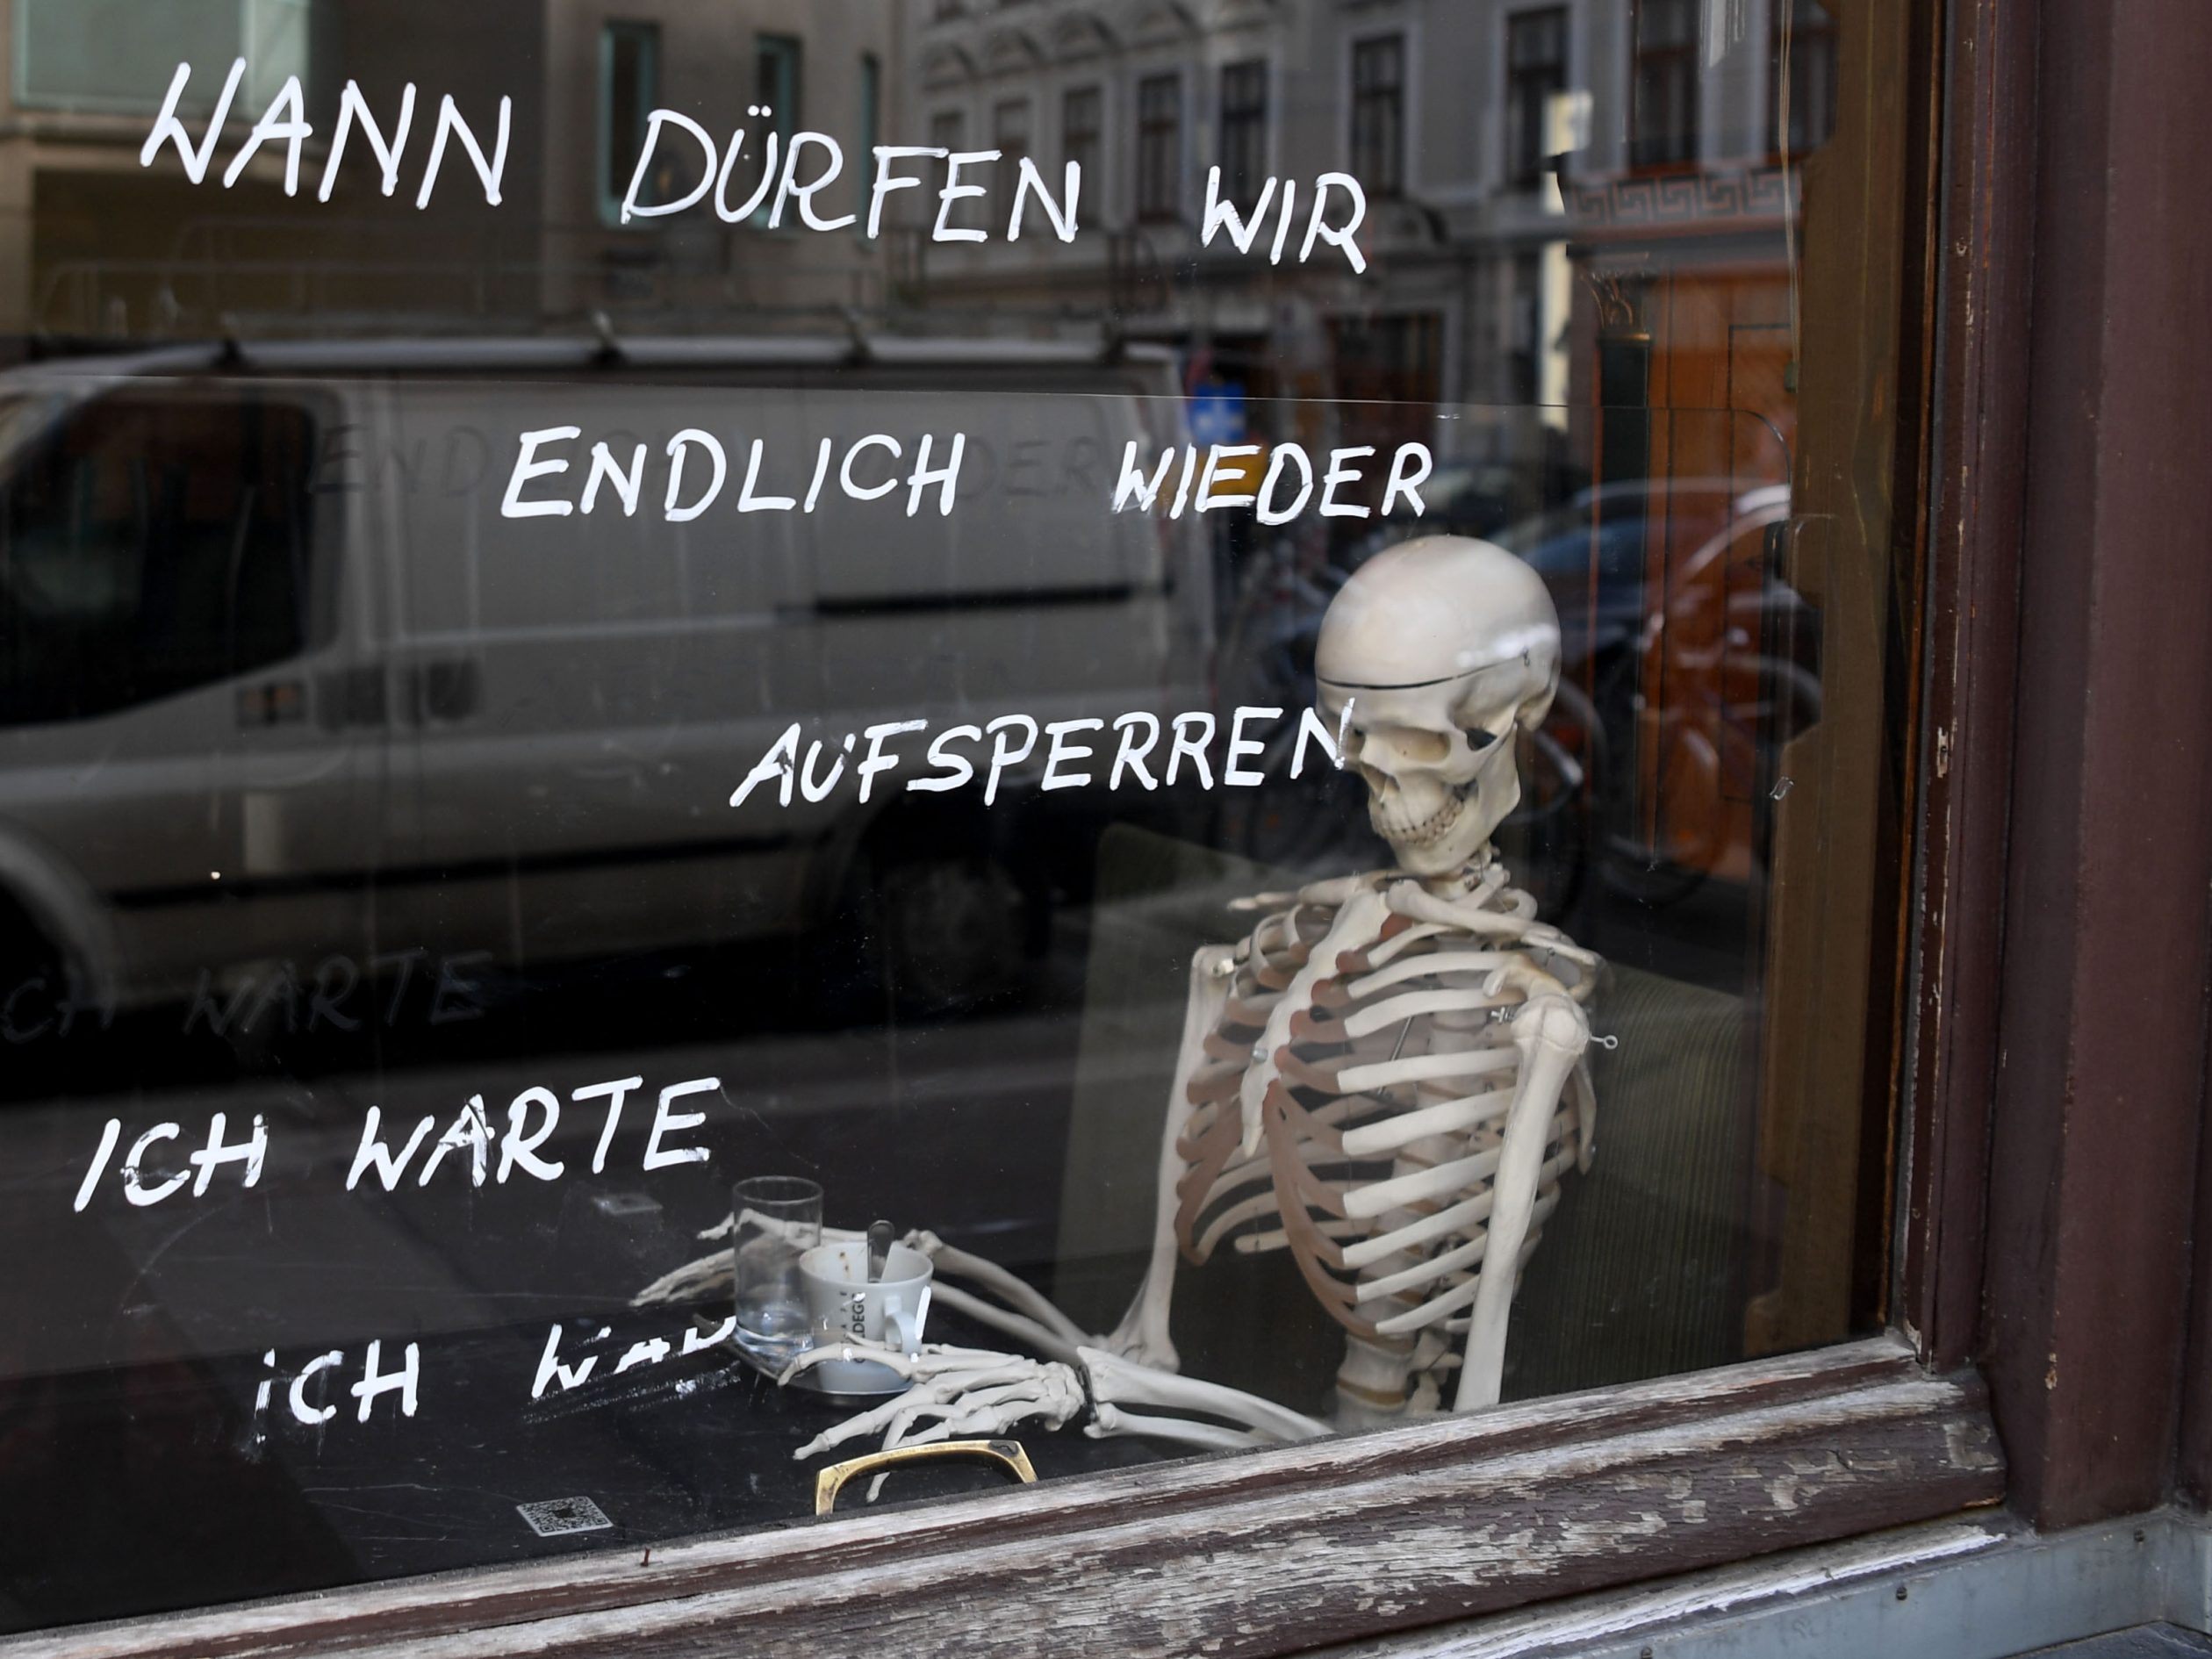 WANN DÜRFEN WIR
ENDLICH WIEDER
AUFSPERREN
ICH WARTE
iCH